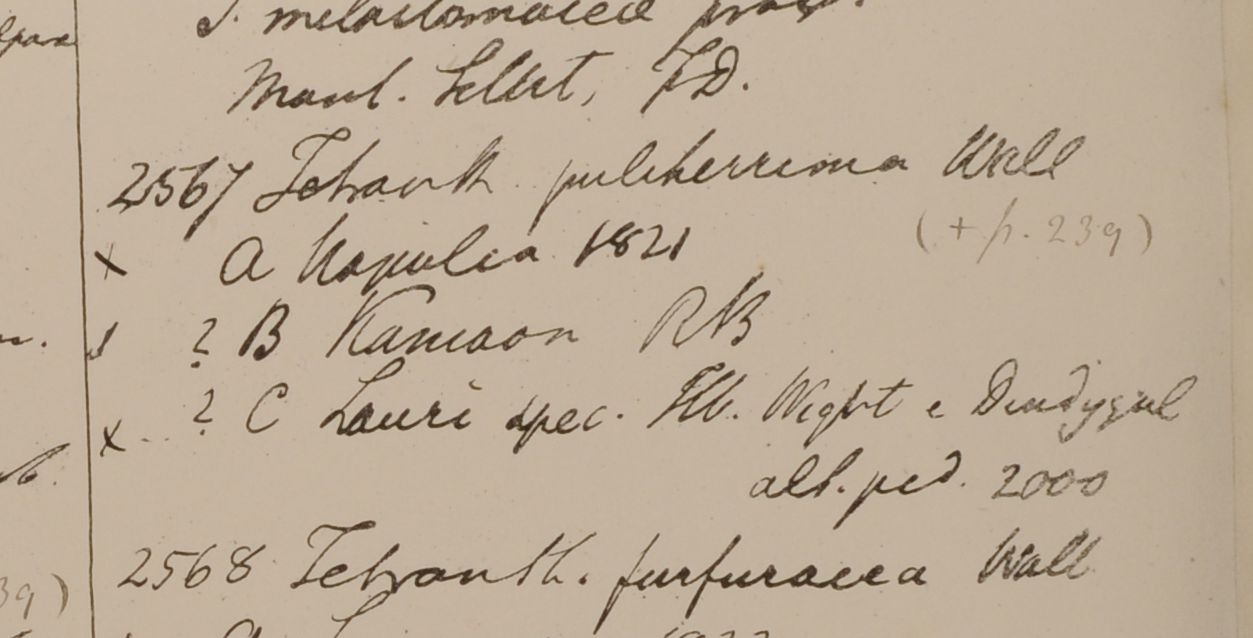 T. melastomacea
Moul. FD.
2567 Tetranth pulcherrima Wall
(+ p. 239)
x A Napalia 1821
? B Kamaon RB
x ? C Lauri spec. Hb. Wight e Dindygul
alt. ped. 2000
2568 Tetranth. furfuracea Wall
39)